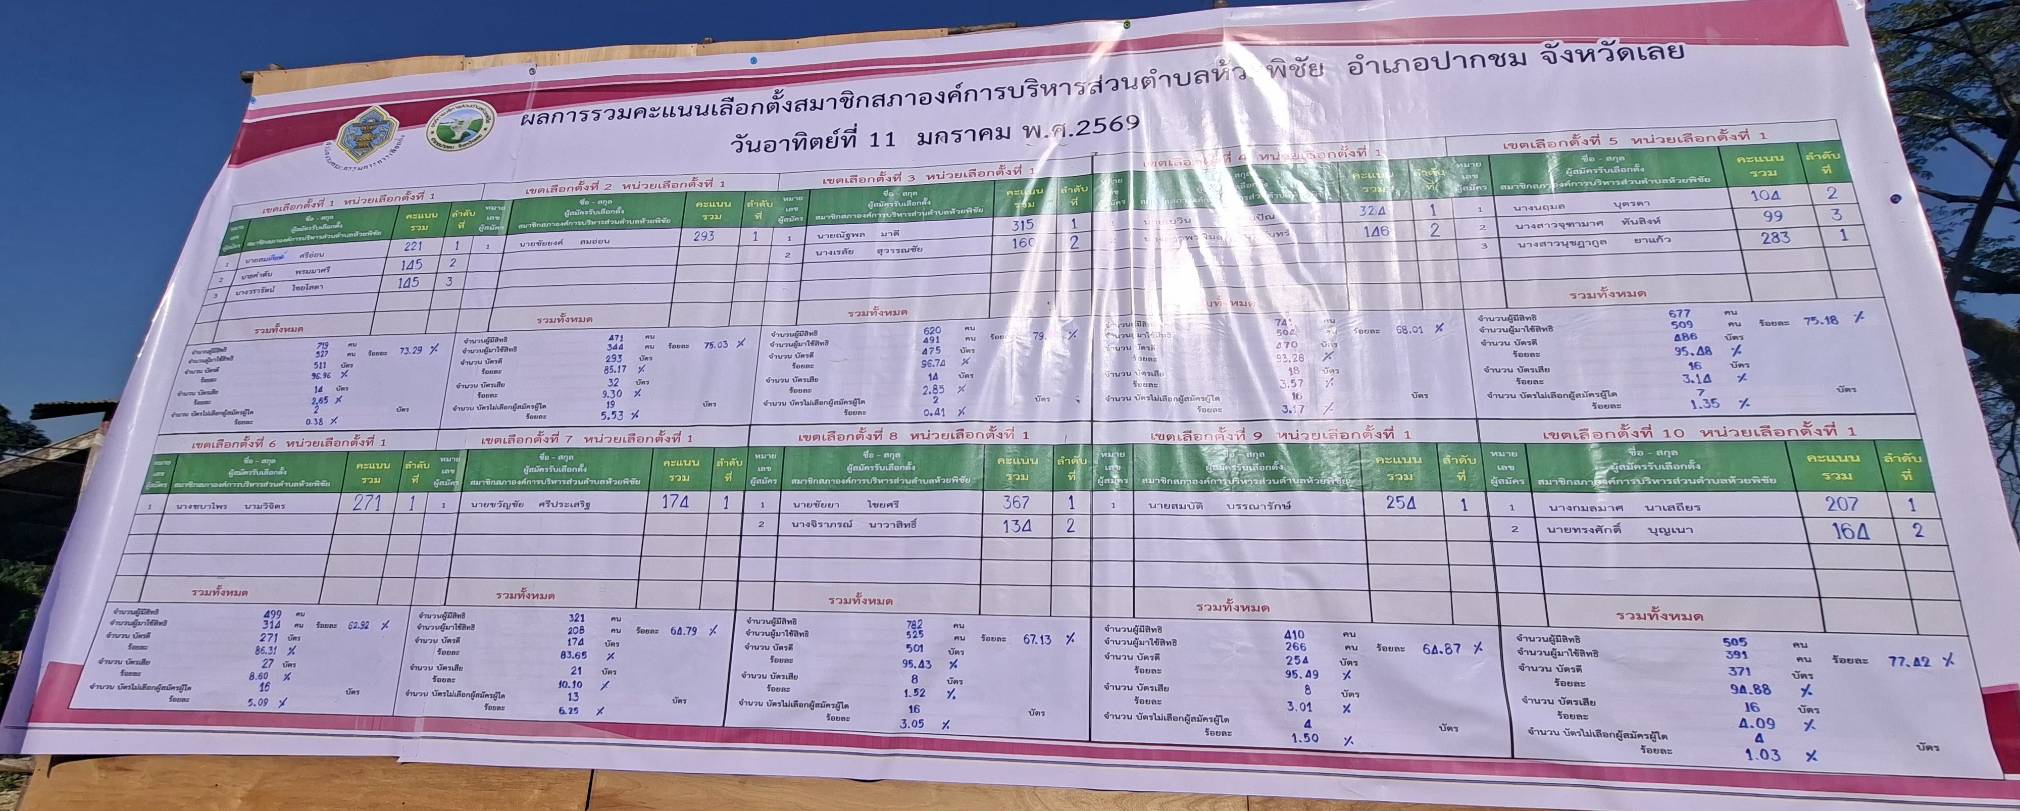 ผลการรวมคะแนนเลือกตั้งสมาชิกสภาองค์การบริหารส่วนตำบลห้วยพิชัย อำเภอปากชม จังหวัดเลย
วันอาทิตย์ที่ 11 มกราคม พ.ศ.2569
เขตเลือกตั้งที่ 1 หน่วยเลือกตั้งที่ 1
หมายเลขผู้สมัคร ชื่อ - สกุล ผู้สมัครรับเลือกตั้ง สมาชิกสภาองค์การบริหารส่วนตำบลห้วยพิชัย คะแนนรวม ลำดับที่
1 ศรีอ่อน 221 1
2 นายคำตัน พรมมาศรี 145 2
3 ไชยโสดา 145 3
รวมทั้งหมด
จำนวนผู้มีสิทธิ 719 คน
จำนวนผู้มาใช้สิทธิ 527 คน ร้อยละ 73.29 %
จำนวน บัตรดี 511 บัตร
ร้อยละ 96.96 %
จำนวน บัตรเสีย 14 บัตร
ร้อยละ 2.65 %
จำนวน บัตรไม่เลือกผู้สมัครผู้ใด 2 บัตร
ร้อยละ 0.38 %
เขตเลือกตั้งที่ 2 หน่วยเลือกตั้งที่ 1
หมายเลขผู้สมัคร ชื่อ - สกุล ผู้สมัครรับเลือกตั้ง สมาชิกสภาองค์การบริหารส่วนตำบลห้วยพิชัย คะแนนรวม ลำดับที่
1 นายชัยยงค์ สมอ่อน 293 1
รวมทั้งหมด
จำนวนผู้มีสิทธิ 471 คน
จำนวนผู้มาใช้สิทธิ 344 คน ร้อยละ 75.03 %
จำนวน บัตรดี 293 บัตร
ร้อยละ 85.17 %
จำนวน บัตรเสีย 32 บัตร
ร้อยละ 9.30 %
จำนวน บัตรไม่เลือกผู้สมัครผู้ใด 19 บัตร
ร้อยละ 5.53 %
เขตเลือกตั้งที่ 3 หน่วยเลือกตั้งที่ 1
หมายเลขผู้สมัคร ชื่อ - สกุล ผู้สมัครรับเลือกตั้ง สมาชิกสภาองค์การบริหารส่วนตำบลห้วยพิชัย คะแนนรวม ลำดับที่
1 นายณัฐพล มาดี 315 1
2 นางเรลัย สุวรรณชัย 160 2
รวมทั้งหมด
จำนวนผู้มีสิทธิ 620 คน
จำนวนผู้มาใช้สิทธิ 491 คน ร้อยละ 79. %
จำนวน บัตรดี 475 บัตร
ร้อยละ 96.74 %
จำนวน บัตรเสีย 14 บัตร
ร้อยละ 2.85 %
จำนวน บัตรไม่เลือกผู้สมัครผู้ใด 2 บัตร
ร้อยละ 0.41 %
เขตเลือกตั้งที่ 4 หน่วยเลือกตั้งที่ 1
คะแนนรวม ลำดับที่
324 1
146 2
รวมทั้งหมด
จำนวนผู้มีสิทธิ คน
จำนวนผู้มาใช้สิทธิ 504 คน ร้อยละ 68.01 %
จำนวน บัตรดี 470 บัตร
ร้อยละ 93.28 %
จำนวน บัตรเสีย 18 บัตร
ร้อยละ 3.57 %
จำนวน บัตรไม่เลือกผู้สมัครผู้ใด 16 บัตร
ร้อยละ 3.17 %
เขตเลือกตั้งที่ 5 หน่วยเลือกตั้งที่ 1
หมายเลขผู้สมัคร ชื่อ - สกุล ผู้สมัครรับเลือกตั้ง สมาชิกสภาองค์การบริหารส่วนตำบลห้วยพิชัย คะแนนรวม ลำดับที่
1 นางนฤมล บุตรดา 104 2
2 นางสาวจุฑามาศ ทันสิงห์ 99 3
3 นางสาวนุชฎากูล ยาแก้ว 283 1
รวมทั้งหมด
จำนวนผู้มีสิทธิ 677 คน
จำนวนผู้มาใช้สิทธิ 509 คน ร้อยละ 75.18 %
จำนวน บัตรดี 486 บัตร
ร้อยละ 95.48 %
จำนวน บัตรเสีย 16 บัตร
ร้อยละ 3.14 %
จำนวน บัตรไม่เลือกผู้สมัครผู้ใด 7 บัตร
ร้อยละ 1.35 %
เขตเลือกตั้งที่ 6 หน่วยเลือกตั้งที่ 1
หมายเลขผู้สมัคร ชื่อ - สกุล ผู้สมัครรับเลือกตั้ง สมาชิกสภาองค์การบริหารส่วนตำบลห้วยพิชัย คะแนนรวม ลำดับที่
1 นางชบาไพร นามวิจิตร 271 1
รวมทั้งหมด
จำนวนผู้มีสิทธิ 499 คน
จำนวนผู้มาใช้สิทธิ 314 คน ร้อยละ 62.92 %
จำนวน บัตรดี 271 บัตร
ร้อยละ 86.31 %
จำนวน บัตรเสีย 27 บัตร
ร้อยละ 8.60 %
จำนวน บัตรไม่เลือกผู้สมัครผู้ใด 16 บัตร
ร้อยละ 5.09 %
เขตเลือกตั้งที่ 7 หน่วยเลือกตั้งที่ 1
หมายเลขผู้สมัคร ชื่อ - สกุล ผู้สมัครรับเลือกตั้ง สมาชิกสภาองค์การบริหารส่วนตำบลห้วยพิชัย คะแนนรวม ลำดับที่
1 นายขวัญชัย ศรีประเสริฐ 174 1
รวมทั้งหมด
จำนวนผู้มีสิทธิ 321 คน
จำนวนผู้มาใช้สิทธิ 208 คน ร้อยละ 64.79 %
จำนวน บัตรดี 174 บัตร
ร้อยละ 83.65 %
จำนวน บัตรเสีย 21 บัตร
ร้อยละ 10.10 %
จำนวน บัตรไม่เลือกผู้สมัครผู้ใด 13 บัตร
ร้อยละ 6.25 %
เขตเลือกตั้งที่ 8 หน่วยเลือกตั้งที่ 1
หมายเลขผู้สมัคร ชื่อ - สกุล ผู้สมัครรับเลือกตั้ง สมาชิกสภาองค์การบริหารส่วนตำบลห้วยพิชัย คะแนนรวม ลำดับที่
1 นายชัยยา ไชยศรี 367 1
2 นางจิราภรณ์ นาวาสิทธิ์ 134 2
รวมทั้งหมด
จำนวนผู้มีสิทธิ 782 คน
จำนวนผู้มาใช้สิทธิ 525 คน ร้อยละ 67.13 %
จำนวน บัตรดี 501 บัตร
ร้อยละ 95.43 %
จำนวน บัตรเสีย 8 บัตร
ร้อยละ 1.52 %
จำนวน บัตรไม่เลือกผู้สมัครผู้ใด 16 บัตร
ร้อยละ 3.05 %
เขตเลือกตั้งที่ 9 หน่วยเลือกตั้งที่ 1
หมายเลขผู้สมัคร ชื่อ - สกุล ผู้สมัครรับเลือกตั้ง สมาชิกสภาองค์การบริหารส่วนตำบลห้วยพิชัย คะแนนรวม ลำดับที่
1 นายสมบัติ บรรณารักษ์ 254 1
รวมทั้งหมด
จำนวนผู้มีสิทธิ 410 คน
จำนวนผู้มาใช้สิทธิ 266 คน ร้อยละ 64.87 %
จำนวน บัตรดี 254 บัตร
ร้อยละ 95.49 %
จำนวน บัตรเสีย 8 บัตร
ร้อยละ 3.01 %
จำนวน บัตรไม่เลือกผู้สมัครผู้ใด 4 บัตร
ร้อยละ 1.50 %
เขตเลือกตั้งที่ 10 หน่วยเลือกตั้งที่ 1
หมายเลขผู้สมัคร ชื่อ - สกุล ผู้สมัครรับเลือกตั้ง สมาชิกสภาองค์การบริหารส่วนตำบลห้วยพิชัย คะแนนรวม ลำดับที่
1 นางกมลมาศ นาเสถียร 207 1
2 นายทรงศักดิ์ บุญเนา 164 2
รวมทั้งหมด
จำนวนผู้มีสิทธิ 505 คน
จำนวนผู้มาใช้สิทธิ 391 คน ร้อยละ 77.42 %
จำนวน บัตรดี 371 บัตร
ร้อยละ 94.88 %
จำนวน บัตรเสีย 16 บัตร
ร้อยละ 4.09 %
จำนวน บัตรไม่เลือกผู้สมัครผู้ใด 4 บัตร
ร้อยละ 1.03 %